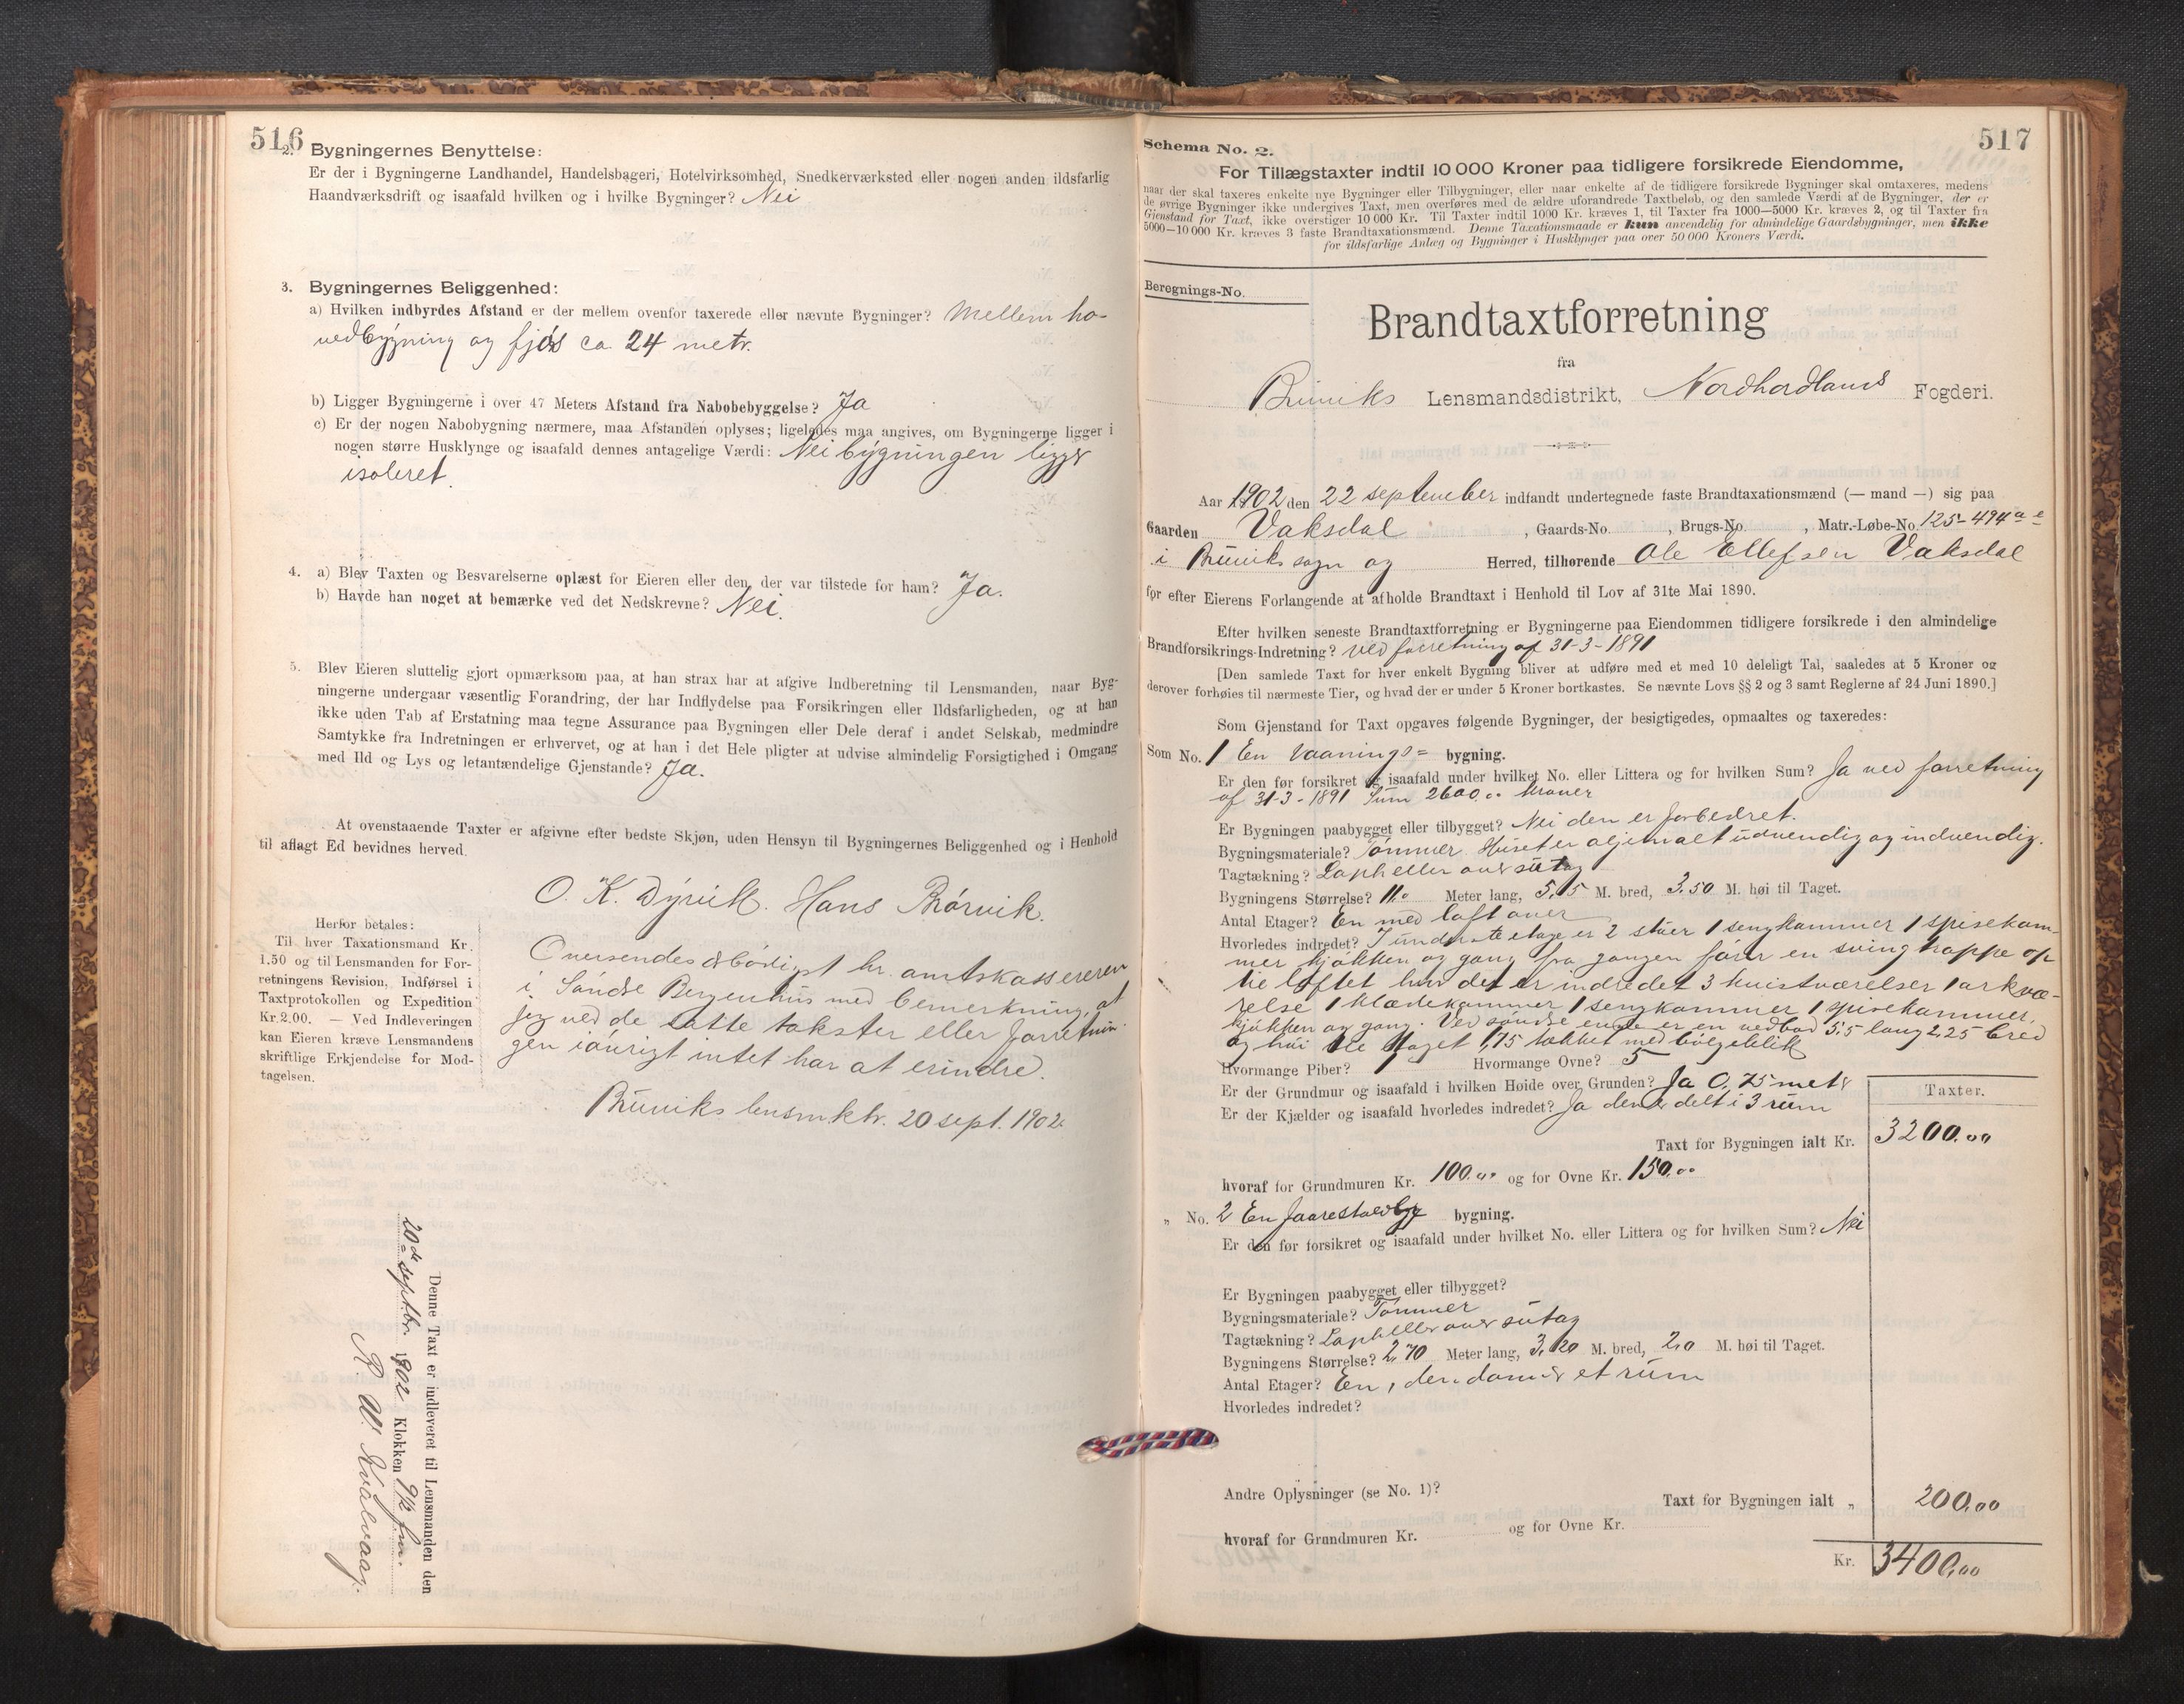 516
2. Bygningernes Benyttelse:
Er der i Bygningerne Landhandel, Handelsbageri, Hotelvirksomhed, Snedkerværksted eller nogen anden ildsfarlig
Haandværksdrift og isaafald hvilken og i hvilke Bygninger? Nei
3. Bygningernes Beliggenhed:
a) Hvilken indbyrdes Afstand er der mellem ovenfor taxerede eller nævnte Bygninger? Mellem ho-
vedbygning og fjøs ca. 24 metr.
b) Ligger Bygningerne i over 47 Meters Afstand fra Nabobebyggelse? Ja
c) Er der nogen Nabobygning nærmere, maa Afstanden oplyses; ligeledes maa angives, om Bygningerne ligger i
nogen større Husklynge og isaafald dennes antagelige Værdi: Nei bygningen ligger
isoleret.
4. a) Blev Taxten og Besvarelserne oplæst for Eieren eller den, der var tilstede for ham? Ja.
b) Havde han noget at bemærke ved det Nedskrevne? Nei.
5. Blev Eieren sluttelig gjort opmærksom paa, at han strax har at afgive Indberetning til Lensmanden, naar Byg-
ningerne undergaar væsentlig Forandring, der har Indflydelse paa Forsikringen eller Ildsfarligheden, og at han
ikke uden Tab af Erstatning maa tegne Assurance paa Bygningen eller Dele deraf i andet Selskab, medmindre
Samtykke fra Indretningen er erhvervet, og at han i det Hele pligter at udvise almindelig Forsigtighed i Omgang
med Ild og Lys og letantændelige Gjenstande? Ja.
At ovenstaaende Taxter er afgivne efter bedste Skjøn, uden Hensyn til Bygningernes Beliggenhed og i Henhold
til aflagt Ed bevidnes herved.
O. K. Dyvik. Hans Rørvik.
Herfor betales:
Til hver Taxationsmand Kr.
1.50 og til Lensmanden for For-
retningens Revision, Indførsel i
Taxtprotokollen og Expedition
Kr. 2.00. — Ved Indleveringen
kan Eieren kræve Lensmandens
skriftlige Erkjendelse for Mod-
tagelsen.
Oversendes ærbødigst hr. amtskassereren
i Søndre Bergenhus med bemerkning, at
jeg ved de satte takster eller forretnin-
gen iøvrigt intet har at erindre.
Bruviks lensmktr. 20 sept. 1902.
Denne Taxt er indleveret til Lensmanden den
20de septbr. 1902 Klokken 9½ fm.
Kvalvaag.
517
Schema No. 2.
For Tillægstaxter indtil 10 000 Kroner paa tidligere forsikrede Eiendomme,
naar der skal taxeres enkelte nye Bygninger eller Tilbygninger, eller naar enkelte af de tidligere forsikrede Bygninger skal omtaxeres, medens
de øvrige Bygninger ikke undergives Taxt, men overføres med de ældre uforandrede Taxtbeløb, og den samlede Værdi af de Bygninger, der er
Gjenstand for Taxt, ikke overstiger 10 000 Kr. Til Taxter indtil 1000 Kr. kræves 1, til Taxter fra 1000—5000 Kr. kræves 2, og til Taxter fra
5000—10 000 Kr. kræves 3 faste Brandtaxationsmænd. Denne Taxationsmaade er kun anvendelig for almindelige Gaardsbygninger, men ikke
for ildsfarlige Anlæg og Bygninger i Husklynger paa over 50 000 Kroners Værdi.
Beregnings-No.
Brandtaxtforretning
fra
Bruviks Lensmandsdistrikt, Nordhordlands Fogderi.
Aar 1902 den 22 september indfandt undertegnede faste Brandtaxationsmænd (— mand —) sig paa
Gaarden Vaksdal, Gaards-No. , Brugs-No. , Matr.-Løbe-No. 125-494 a e
i Bruviks sogn og Herred, tilhørende Ole Ellefsen Vaksdal
for efter Eierens Forlangende at afholde Brandtaxt i Henhold til Lov af 31te Mai 1890.
Efter hvilken seneste Brandtaxtforretning er Bygningerne paa Eiendommen tidligere forsikrede i den almindelige
Brandforsikrings-Indretning? Ved forretning af 31-3-1891
[Den samlede Taxt for hver enkelt Bygning bliver at udføre med et med 10 deleligt Tal, saaledes at 5 Kroner og
derover forhøies til nærmeste Tier, og hvad der er under 5 Kroner bortkastes. Se nævnte Lovs §§ 2 og 3 samt Reglerne af 24 Juni 1890.]
Som Gjenstand for Taxt opgaves følgende Bygninger, der besigtigedes, opmaaltes og taxeredes:
Som No. 1 En Vaanings= bygning.
Er den før forsikret og isaafald under hvilket No. eller Littera og for hvilken Sum? Ja ved forretning
af 31-3-1891 Sum 2600.00 Kroner
Er Bygningen paabygget eller tilbygget? Nei den er forbedret.
Bygningsmateriale? Tømmer. Huset er oljemalt udvendig og indvendig.
Tagtækning? Lapheller over sutag
Bygningens Størrelse? 11.0 Meter lang, 5.15 M. bred, 3.50 M. høi til Taget.
Antal Etager? En med loft over
Hvorledes indredet? I underste etage er 2 stuer 1 sengkammer 1 spisekam-
mer kjøkken og gang fra gangen fører en svingtrappe op
til loftet hvor det er indredet 3 kvistværelser 1 arkvæ-
relse 1 klædekammer 1 sengkammer 1 spisekammer,
kjøkken og gang. Ved søndre ende er en vedbod 5.5 lang 2,25 bred
og høi til taget 1,75 tækket med bølgeblik
Hvormange Piber? 1 Hvormange Ovne? 5
Er der Grundmur og isaafald i hvilken Høide over Grunden? Ja 0,75 meter
Er der Kjælder og isaafald hvorledes indredet? Ja den er delt i 3 rum
Taxter.
Taxt for Bygningen ialt Kr. 3200.00
hvoraf for Grundmuren Kr. 100.00 og for Ovne Kr. 150.00
„ No. 2 En bygning.
Er den før forsikret og isaafald under hvilket No. eller Littera og for hvilken Sum? Nei
Er Bygningen paabygget eller tilbygget?
Bygningsmateriale? Tømmer
Tagtækning? Lapheller over sutag
Bygningens Størrelse? 2.70 Meter lang, 3.20 M. bred, 2.0 M. høi til Taget.
Antal Etager? En, et rum
Hvorledes indredet?
Andre Oplysninger (se No. 1)?
Taxt for Bygningen ialt „ 200.00
hvoraf for Grundmuren Kr. og for Ovne Kr.
Kr. 3400.00